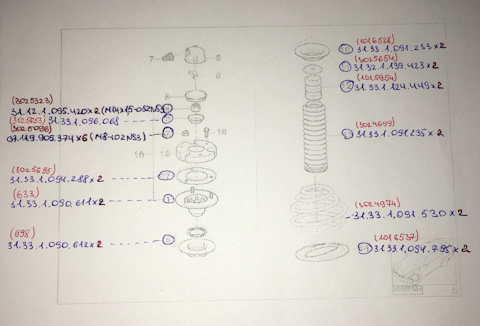 (1016528)
31.33.1.091.233 x 2
(3025654)
31.32.1.139.423 x 2
31.33.1.124.449 x 2
7
8
(3025323)
31.12.1.095.420 x 2
31.33.1.096.068
07.119.905.374 x 6 (M8-10ZNS3)
18
18
(3024699)
31.33.1.091.235 x 2
(3025695)
31.33.1.094.288 x 2
(633)
31.33.1.090.611 x 2
(3024974)
31.33.1.091 530 x 2
(998)
31.33.1.090.612 x 2
(1016537)
31.33.1.094.795 x 2